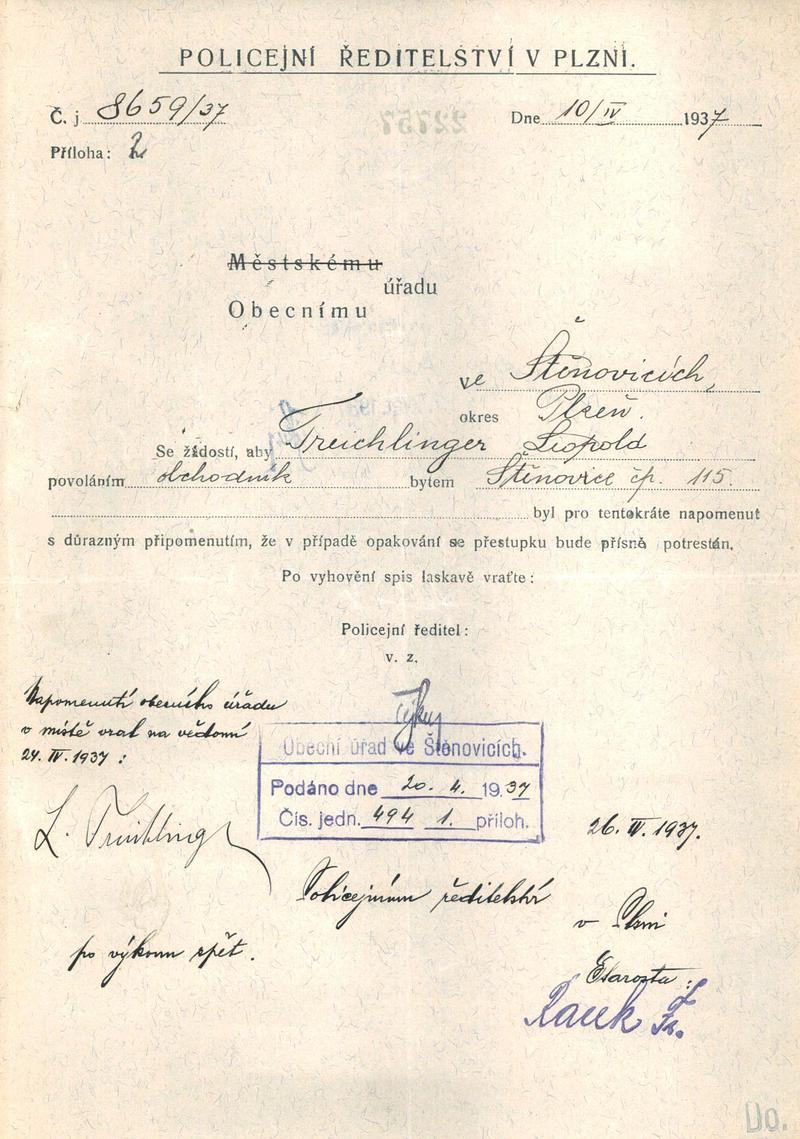 POLICEJNÍ ŘEDITELSTVÍ V PLZNI.
Č. j 8659/37 Dne 10/IV 1937
Příloha: 2
Městskému
úřadu
Obecnímu
ve Štěnovicích,
okres Plzeň.
Se žádostí, aby Treichlinger Leopold
povoláním obchodník bytem Štěnovice čp. 115.
byl pro tentokráte napomenut
s důrazným připomenutím, že v případě opakování se přestupku bude přísně potrestán.
Po vyhovění spis laskavě vraťte:
Policejní ředitel:
v. z.
Napomenutí obecního úřadu
v místě vzal na vědomí
24. IV. 1937 :
Obecní úřad ve Štěnovicích.
Podáno dne 20. 4. 1937
Čís. jedn. 494 1. příloh.
L. Treichlinger
26. IV. 1937.
Policejnímu ředitelství
v Plzni
po výkonu zpět.
Starosta:
Do.